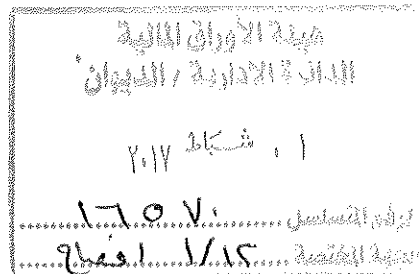 هيئة الأوراق المالية
الدائرة الادارية / الديوان
٠١ شباط ٢٠١٧
الرقم المتسلسل ١٦٥٧٠
الجهة المختصة ١/١٢ افصاح